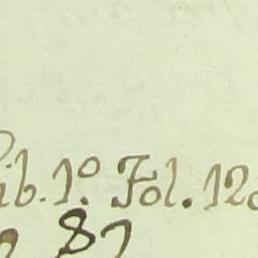 ib. 1º. Fol. 12
87